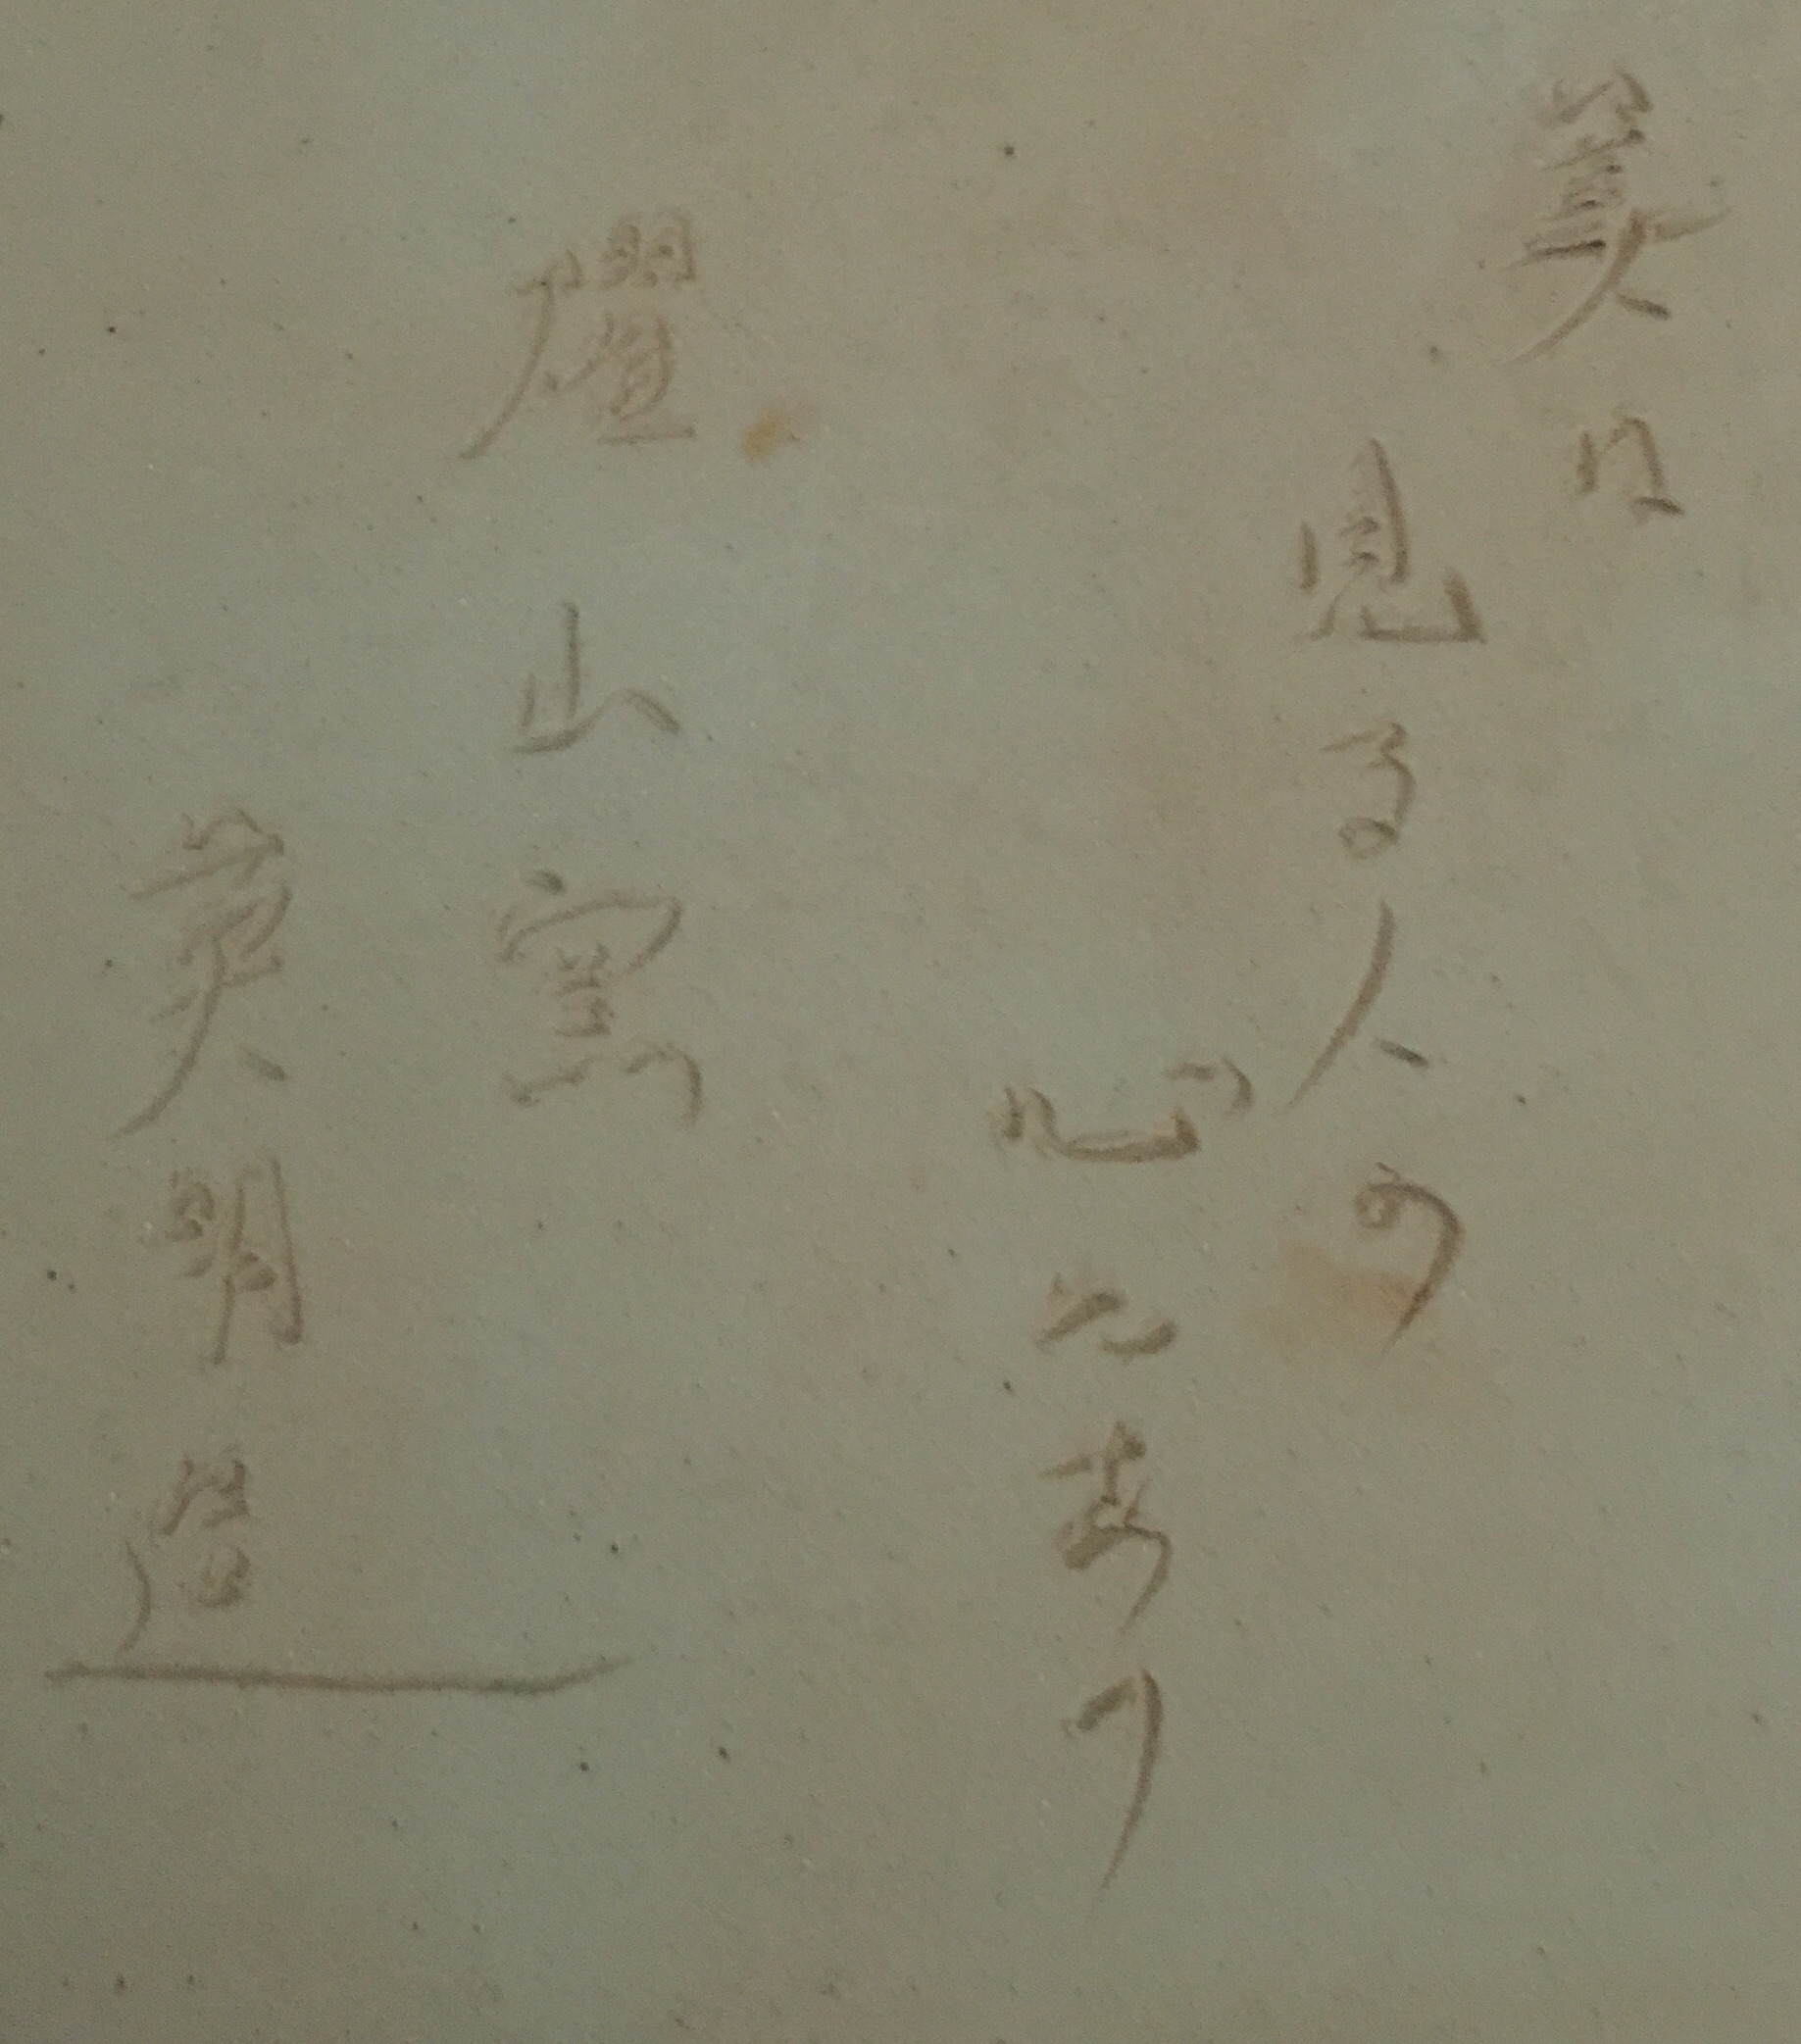 美は
見る人の
心にあり
山窯
英明造